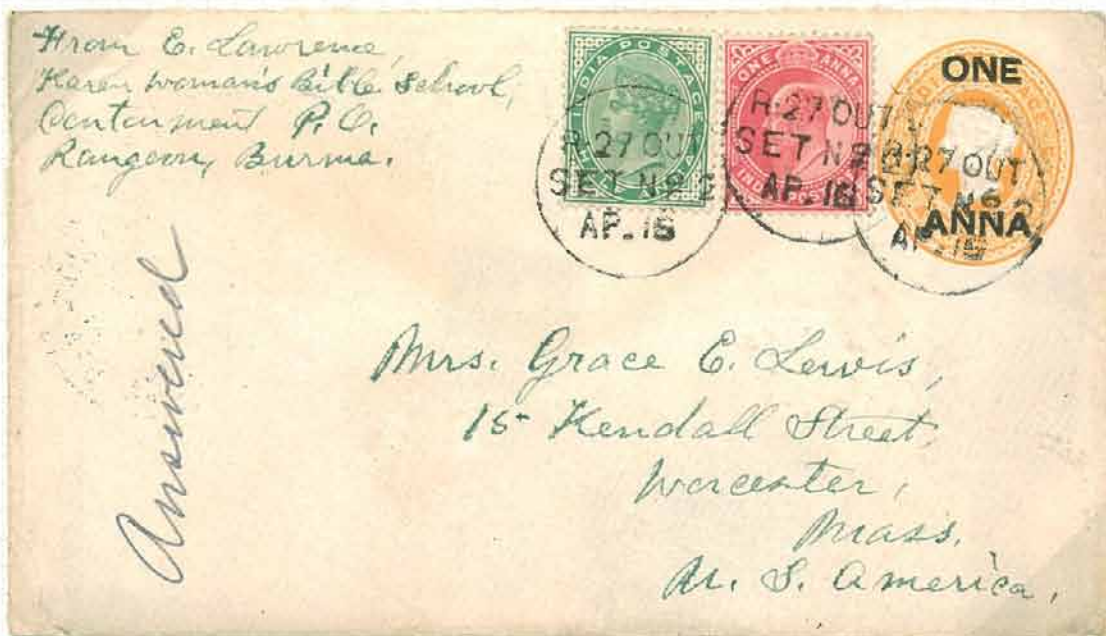 From E. Lawrence,
Karen Woman's Bible School,
Cantonment P.O.
Rangoon, Burma.
INDIA POSTAGE
HALF ANNA
ONE ANNA
INDIA POSTAGE
ONE
ANNA
R-27 OUT
SET No 2
AP. 16
R-27 OUT
SET No 2
AP. 16
R-27 OUT
SET No 2
AP. 16
Answered
Mrs. Grace E. Lewis,
15 Kendall Street,
Worcester,
Mass.
U. S. America.